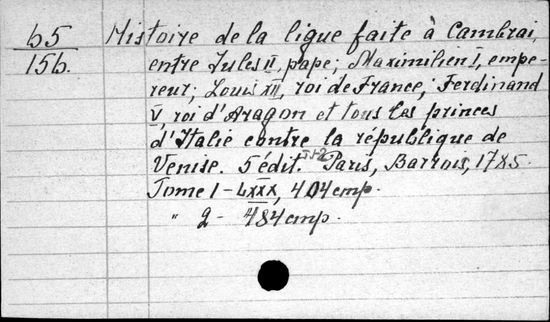 65 Histoire de la ligue faite à Cambrai,
156. entre Jules II, pape; Maximilien I, empe-
reur; Louis XII, roi de France; Ferdinand
V, roi d'Aragon et tous les princes
d'Italie contre la république de
Venise. 5 édit. Paris, Barrois, 1785.
Tome 1 - LXXX, 404 стр.
" 2 - 484 стр.